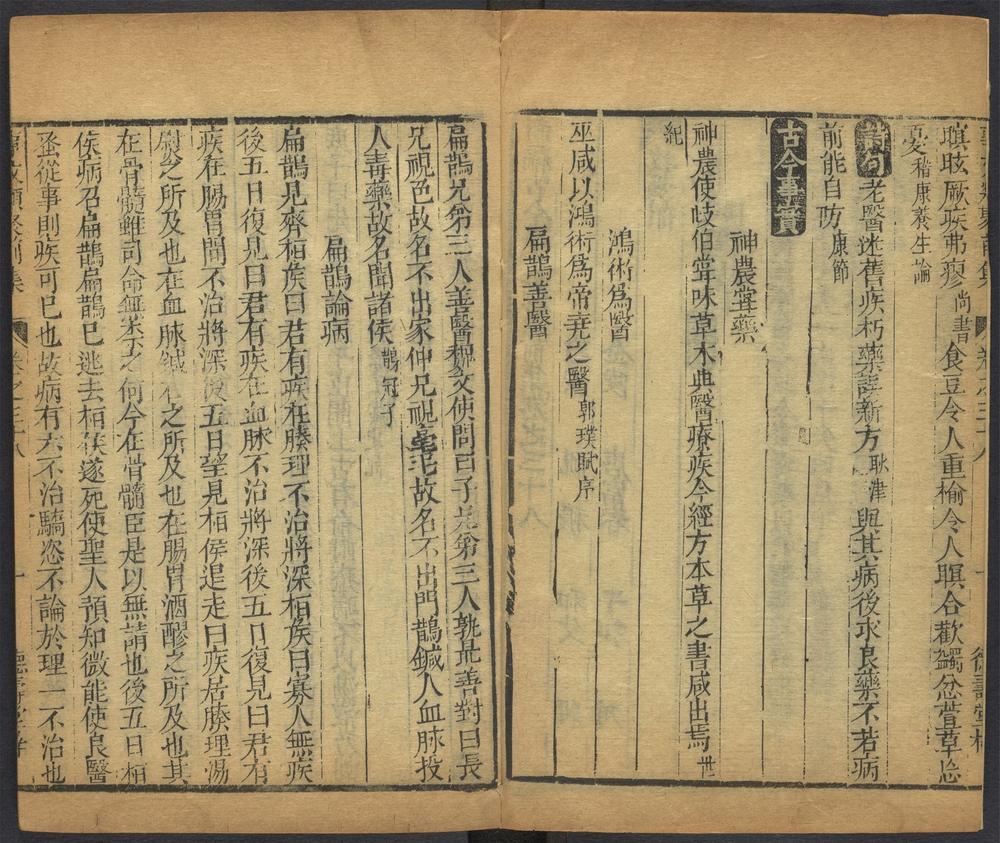 瞑眩厥疾弗瘳尚書食豆令人重榆令人瞑合歡蠲忿萱草忘
憂嵇康養生論
詩句老醫迷舊疾朽藥誤新方耿津與其病後求良藥不若病
前能自防康節
古今事實
神農嘗藥
神農使岐伯嘗味草木典醫療疾今經方本草之書咸出焉世
紀
鴻術為醫
巫咸以鴻術為帝堯之醫郭璞賦序
扁鵲善醫
扁鵲兄弟三人並醫魏文使問曰子兄弟三人孰最善對曰長
兄視色故名不出家仲兄視毫毛故名不出門鵲鍼人血脉投
人毒藥故名聞諸侯鶡冠子
扁鵲論病
扁鵲見齊桓侯曰君有疾在腠理不治將深桓侯曰寡人無疾
後五日復見曰君有疾在血脉不治將深後五日復見曰君有
疾在腸胃間不治將深後五日望見桓侯退走曰疾居腠理湯
熨之所及也在血脉鍼石之所及也在腸胃酒醪之所及也其
在骨髓雖司命無柰之何今在骨髓臣是以無請也後五日桓
侯病召扁鵲扁鵲巳逃去桓侯遂死使聖人預知微能使良醫
蚤從事則疾可巳也故病有六不治驕恣不論於理一不治也
卷之三十八
一